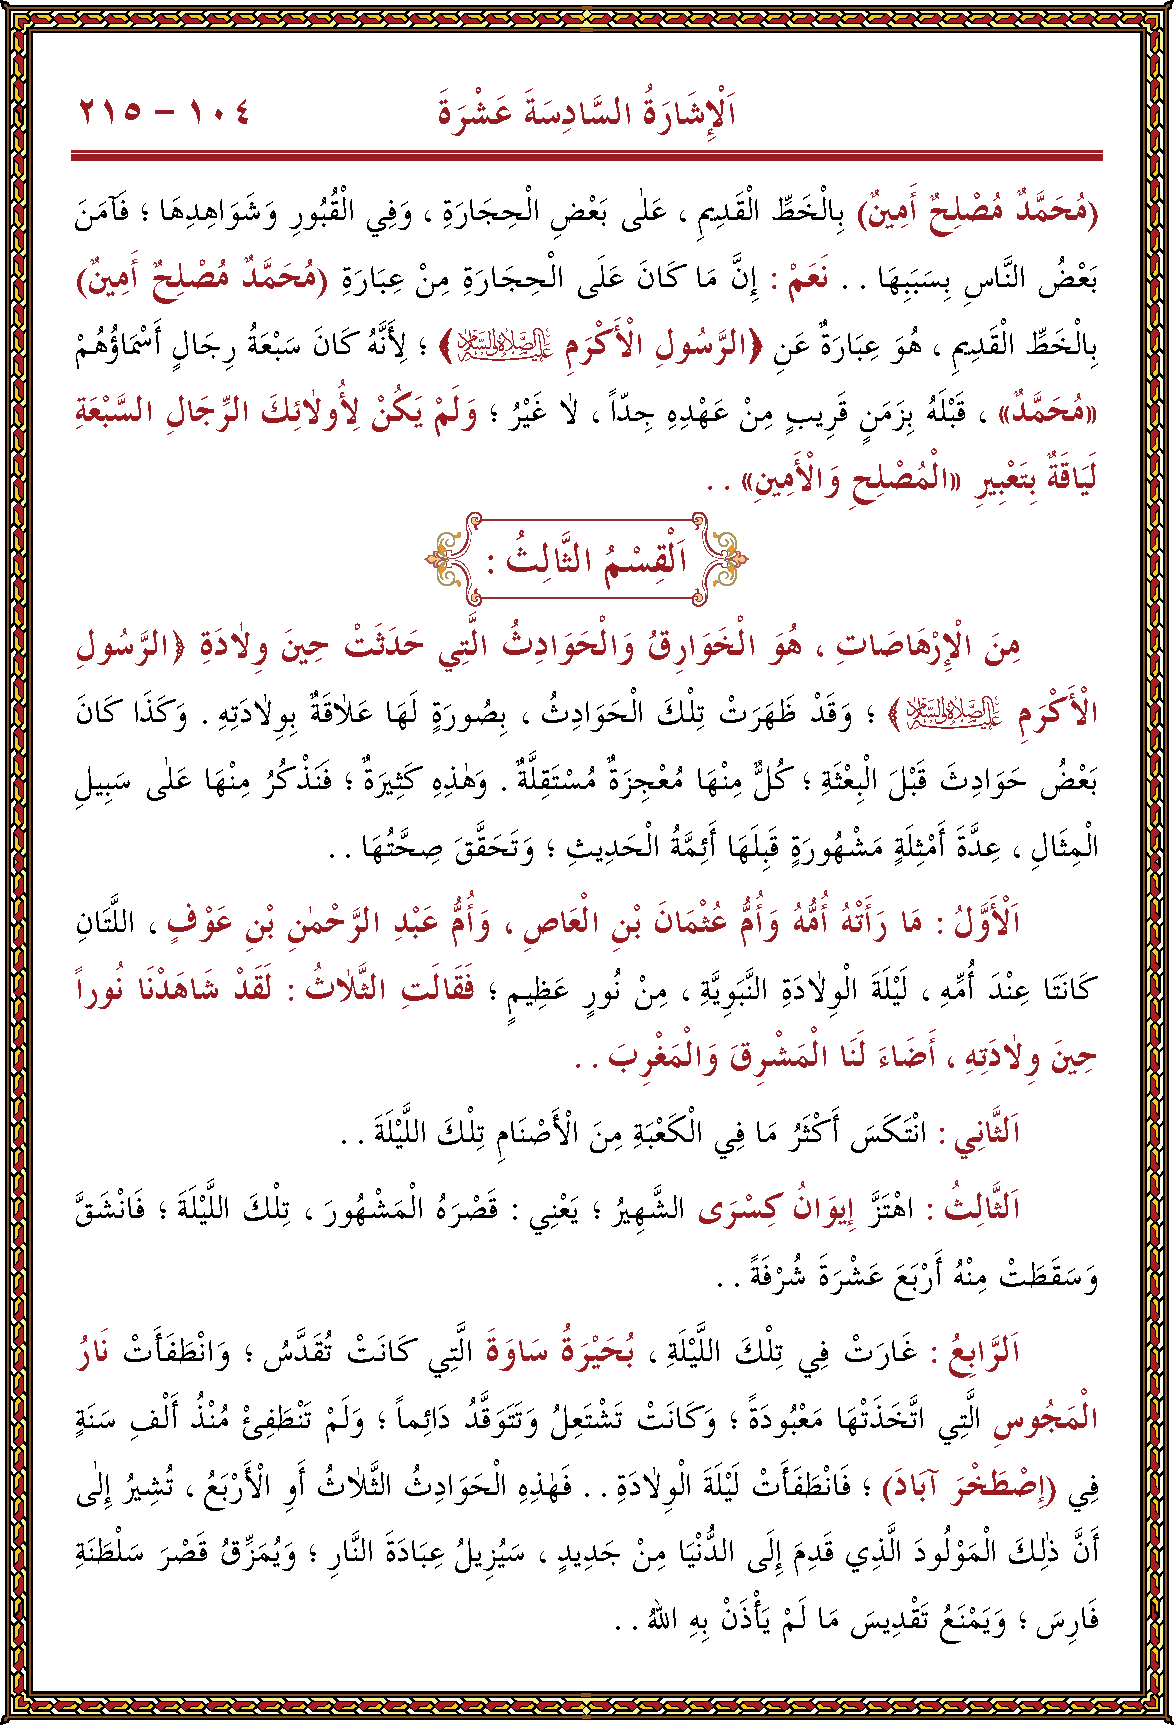 اَلْإِشَارَةُ السَّادِسَةَ عَشْرَةَ ١٠٤ - ٢١٥
(مُحَمَّدٌ مُصْلِحٌ أَمِينٌ) بِالْخَطِّ الْقَدِيمِ ، عَلٰى بَعْضِ الْحِجَارَةِ ، وَفِي الْقُبُورِ وَشَوَاهِدِهَا ؛ فَآمَنَ
بَعْضُ النَّاسِ بِسَبَبِهَا . . نَعَمْ : إِنَّ مَا كَانَ عَلَى الْحِجَارَةِ مِنْ عِبَارَةِ (مُحَمَّدٌ مُصْلِحٌ أَمِينٌ)
بِالْخَطِّ الْقَدِيمِ ، هُوَ عِبَارَةٌ عَنِ ﴿الرَّسُولِ الْأَكْرَمِ عَلَيْهِ الصَّلَاةُ وَالسَّلَامُ﴾ ؛ لِأَنَّهُ كَانَ سَبْعَةُ رِجَالٍ أَسْمَاؤُهُمْ
«مُحَمَّدٌ» ، قَبْلَهُ بِزَمَنٍ قَرِيبٍ مِنْ عَهْدِهِ جِدّاً ، لاٰ غَيْرُ ؛ وَلَمْ يَكُنْ لِأُولاٰئِكَ الرِّجَالِ السَّبْعَةِ
لَيَاقَةٌ بِتَعْبِيرِ «الْمُصْلِحِ وَالْأَمِينِ» . .
اَلْقِسْمُ الثَّالِثُ :
مِنَ الْإِرْهَاصَاتِ ، هُوَ الْخَوَارِقُ وَالْحَوَادِثُ الَّتِي حَدَثَتْ حِينَ وِلاٰدَةِ ﴿الرَّسُولِ
الْأَكْرَمِ عَلَيْهِ الصَّلَاةُ وَالسَّلَامُ﴾ ؛ وَقَدْ ظَهَرَتْ تِلْكَ الْحَوَادِثُ ، بِصُورَةٍ لَهَا عَلاَقَةٌ بِوِلاٰدَتِهِ . وَكَذَا كَانَ
بَعْضُ حَوَادِثَ قَبْلَ الْبِعْثَةِ ؛ كُلٌّ مِنْهَا مُعْجِزَةٌ مُسْتَقِلَّةٌ . وَهٰذِهِ كَثِيرَةٌ ؛ فَنَذْكُرُ مِنْهَا عَلٰى سَبِيلِ
الْمِثَالِ ، عِدَّةَ أَمْثِلَةٍ مَشْهُورَةٍ قَبِلَهَا أَئِمَّةُ الْحَدِيثِ ؛ وَتَحَقَّقَ صِحَّتُهَا . .
اَلْأَوَّلُ : مَا رَأَتْهُ أُمُّهُ وَأُمُّ عُثْمَانَ بْنِ الْعَاصِ ، وَأُمُّ عَبْدِ الرَّحْمٰنِ بْنِ عَوْفٍ ، اللَّتَانِ
كَانَتَا عِنْدَ أُمِّهِ ، لَيْلَةَ الْوِلاٰدَةِ النَّبَوِيَّةِ ، مِنْ نُورٍ عَظِيمٍ ؛ فَقَالَتِ الثَّلاٰثُ : لَقَدْ شَاهَدْنَا نُوراً
حِينَ وِلاٰدَتِهِ ، أَضَاءَ لَنَا الْمَشْرِقَ وَالْمَغْرِبَ . .
اَلثَّانِي : انْتَكَسَ أَكْثَرُ مَا فِي الْكَعْبَةِ مِنَ الْأَصْنَامِ تِلْكَ اللَّيْلَةَ . .
اَلثَّالِثُ : اهْتَزَّ إِيوَانُ كِسْرَى الشَّهِيرُ ؛ يَعْنِي : قَصْرَهُ الْمَشْهُورَ ، تِلْكَ اللَّيْلَةَ ؛ فَانْشَقَّ
وَسَقَطَتْ مِنْهُ أَرْبَعَ عَشْرَةَ شُرْفَةً . .
اَلرَّابِعُ : غَارَتْ فِي تِلْكَ اللَّيْلَةِ ، بُحَيْرَةُ سَاوَةَ الَّتِي كَانَتْ تُقَدَّسُ ؛ وَانْطَفَأَتْ نَارُ
الْمَجُوسِ الَّتِي اتَّخَذَتْهَا مَعْبُودَةً ؛ وَكَانَتْ تَشْتَعِلُ وَتَتَوَقَّدُ دَائِماً ؛ وَلَمْ تَنْطَفِئْ مُنْذُ أَلْفِ سَنَةٍ
فِي (إِصْطَخْرَ آبَادَ) ؛ فَانْطَفَأَتْ لَيْلَةَ الْوِلاٰدَةِ . . فَهٰذِهِ الْحَوَادِثُ الثَّلاٰثُ أَوِ الْأَرْبَعُ ، تُشِيرُ إِلٰى
أَنَّ ذٰلِكَ الْمَوْلُودَ الَّذِي قَدِمَ إِلَى الدُّنْيَا مِنْ جَدِيدٍ ، سَيُزِيلُ عِبَادَةَ النَّارِ ؛ وَيُمَزِّقُ قَصْرَ سَلْطَنَةِ
فَارِسَ ؛ وَيَمْنَعُ تَقْدِيسَ مَا لَمْ يَأْذَنْ بِهِ اللهُ . .